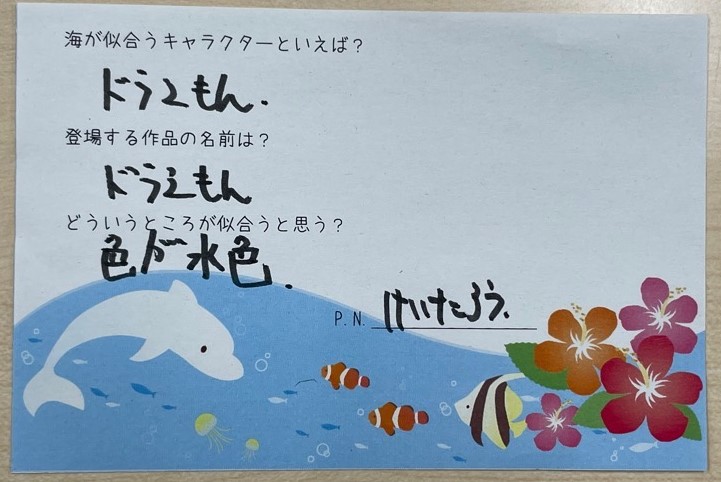 海が似合うキャラクターといえば？
ドラえもん.
登場する作品の名前は？
ドラえもん
どういうところが似合うと思う？
色が水色.
P.N. けいたろう.